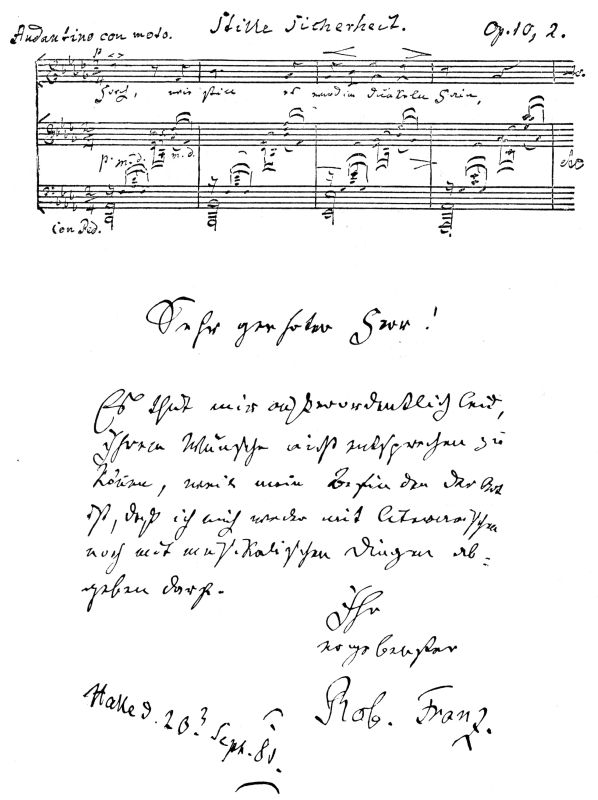 Andantino con moto. Stille Sicherheit. Op. 10, 2.
p
Horch, wie still es wird im dunkeln Hain,
p. m.d. m.d.
Con Ped.
Sehr geehrter Herr!
Es thut mir außerordentlich leid,
Ihrem Wunsche nicht entsprechen zu
können, weil mein Befinden der Art
ist, daß ich mich weder mit literarischen
noch mit musikalischen Dingen ab=
geben darf.
Ihr
ergebenster
Rob. Franz.
Halle d. Sept. 81.